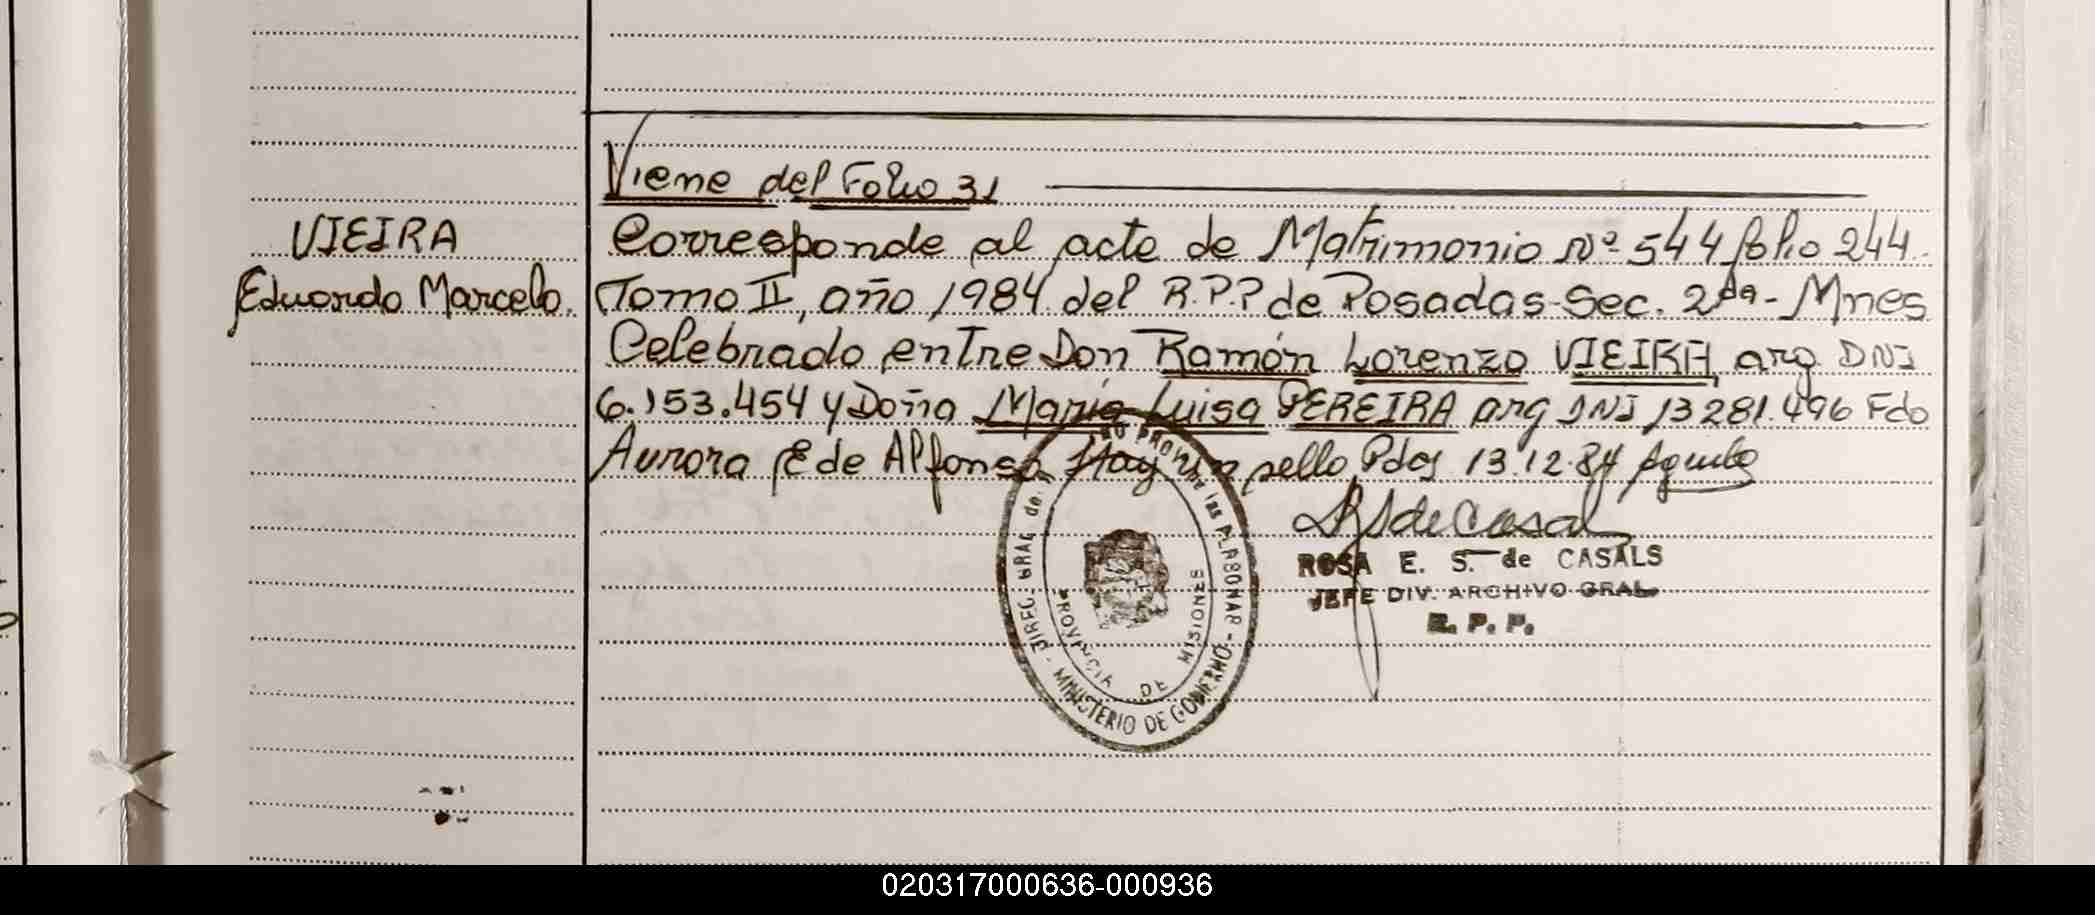 Viene del Folio 31
VIEIRA
Eduardo Marcelo.
Corresponde al acta de Matrimonio Nº 544 folio 244
Tomo II, año 1984 del R.P.P de Posadas-Sec. 2da- Mnes
Celebrado entre Don Ramón Lorenzo VIEIRA, arg DNI
6.153.454 y Doña María Luisa PEREIRA arg DNI 13281.496 Fdo
Aurora E de Alfonso Hay un sello Pdas 13.12.84
ROSA E. S. de CASALS
JEFE DIV. ARCHIVO GRAL
R. P. P.
PROVINCIA DE MISIONES
MINISTERIO DE GOBIERNO
020317000636-000936